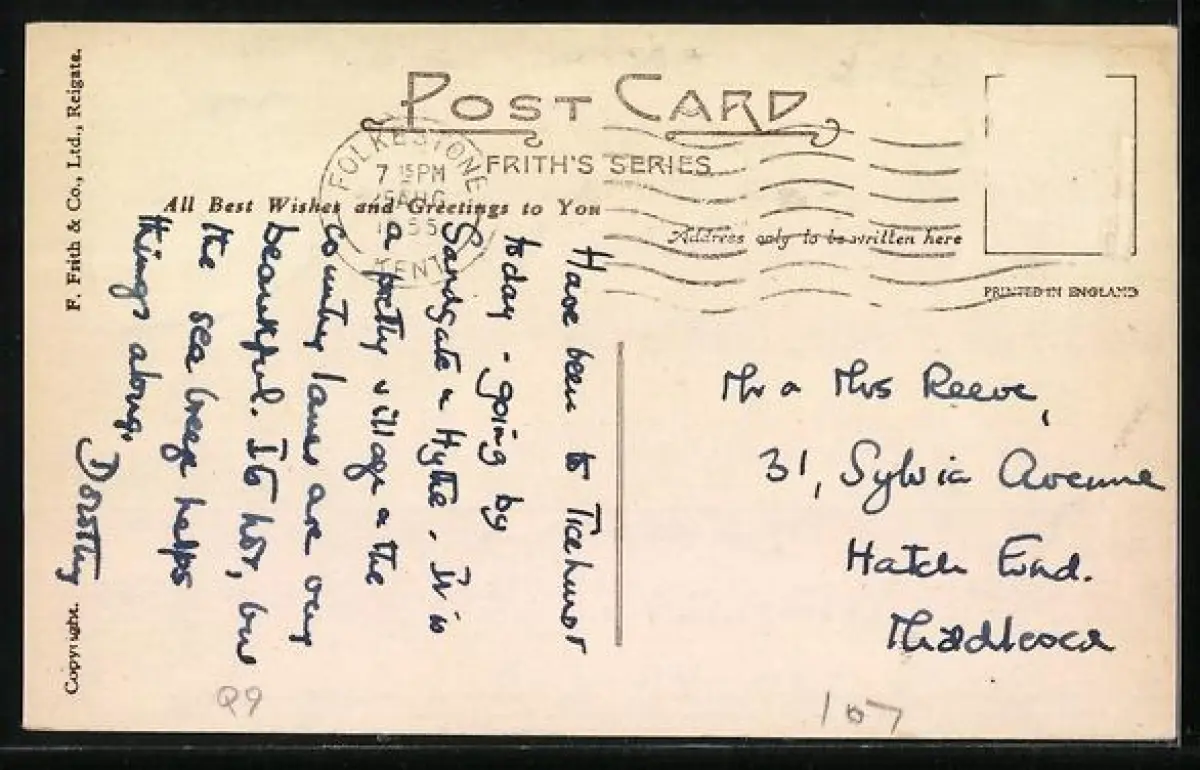 POST CARD
FRITH'S SERIES
FOLKESTONE
7 15 PM
AUG
1955
KENT
All Best Wishes and Greetings to You
Address only to be written here
PRINTED IN ENGLAND
Have been to Ticehurst
today - going by
Sandgate & Hythe. It is
a pretty village & the
country lanes are very
beautiful. It's hot, but
the sea breeze helps
things along,
Dorothy
Mr & Mrs Reeve,
31, Sylvia Avenue
Hatch End.
Middlesex
F. Frith & Co., Ltd., Reigate.
Copyright.
Q9
107